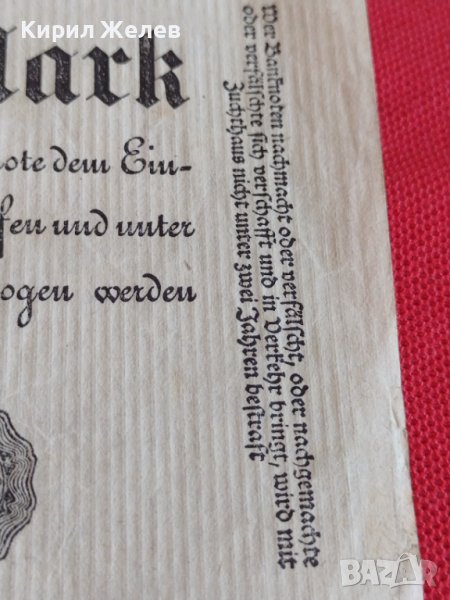 Кирил Желев
Mark
note dem Ein-
fen und unter
ogen werden
Wer Banknoten nachmacht oder verfälscht, oder nachgemachte
oder verfälschte sich verschafft und in Verkehr bringt, wird mit
Zuchthaus nicht unter zwei Jahren bestraft
BAZAR